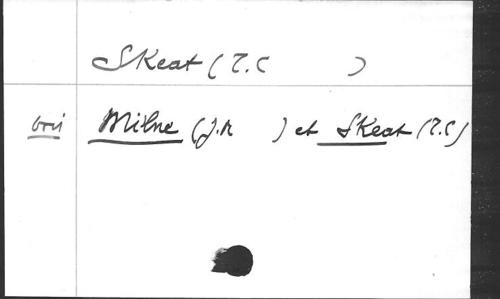 Skeat (T.C )
Milne (J.M ) et Skeat (T.C)